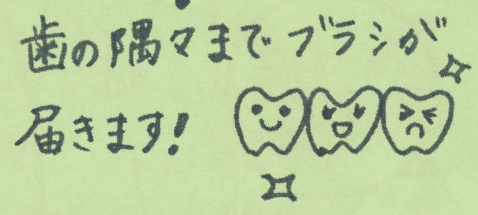 歯の隅々までブラシが
届きます!